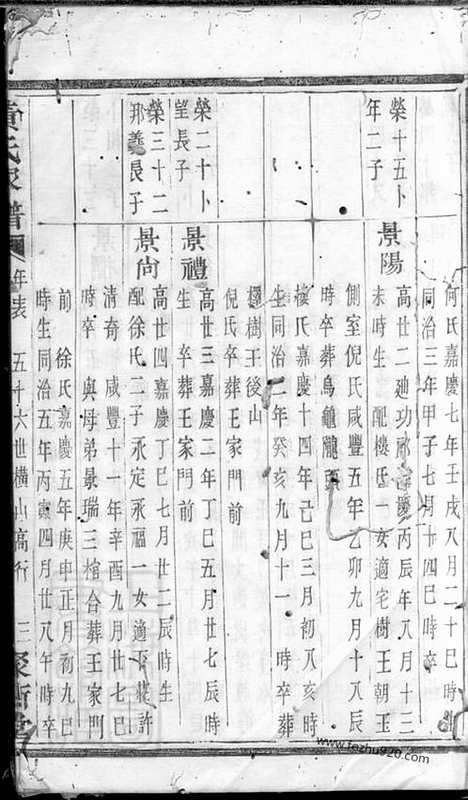 何氏嘉慶七年壬戌八月二十巳時
同治三年甲子七月廿四巳時卒
榮十五卜年二子
景陽
高廿二廸功郎嘉慶丙辰年八月十三
未時生 配樓氏一女適宅樹王朝玉
側室倪氏咸豐五年乙卯九月十八辰
時卒葬烏龜隴
樓氏嘉慶十四年己巳三月初八亥時
生同治二年癸亥九月十一 時卒葬
樹王後山
倪氏卒葬王家門前
榮二十卜㞷長子
景禮
高廿三嘉慶二年丁巳五月廿七辰時
生 卒葬王家門前
榮三十二邢善長子
景尚
高廿四嘉慶丁巳七月廿二辰時生
配徐氏二子永定永福一女適下 許
清奇 咸豐十一年辛酉九月廿七
時卒 與母弟景瑞三棺合葬王家門
前 徐氏嘉慶五年庚申正月初九巳
時生同治五年丙寅四月廿八午時卒
黄氏家譜 年表 五十六世橫山高行 三
www.fezhu920.com